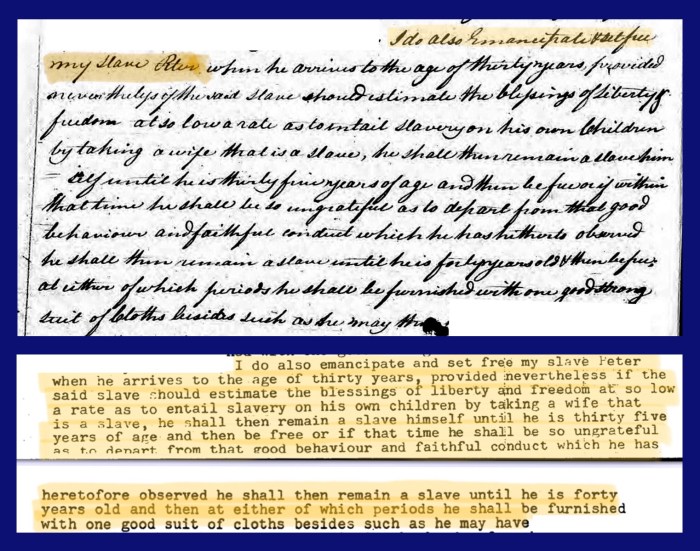 I do also Emancipate & set free
my slave Peter when he arrives to the age of thirty years, provided
nevertheless if the said slave should estimate the blessings of Liberty &
freedom at so low a rate as to entail slavery on his own Children
by taking a wife that is a slave, he shall then remain a slave him
= self until he is thirty five years of age and then be free or if within
that time he shall be so ungrateful as to depart from that good
behaviour and faithful conduct which he has hitherto observed
he shall then remain a slave until he is forty years old & then be free
at either of which periods he shall be furnished with one good strong
suit of Cloths besides such as he may
I do also emancipate and set free my slave Peter
when he arrives to the age of thirty years, provided nevertheless if the
said slave should estimate the blessings of liberty and freedom at so low
a rate as to entail slavery on his own children by taking a wife that
is a slave, he shall then remain a slave himself until he is thirty five
years of age and then be free or if that time he shall be so ungrateful
as to depart from that good behaviour and faithful conduct which he has
heretofore observed he shall then remain a slave until he is forty
years old and then at either of which periods he shall be furnished
with one good suit of cloths besides such as he may have